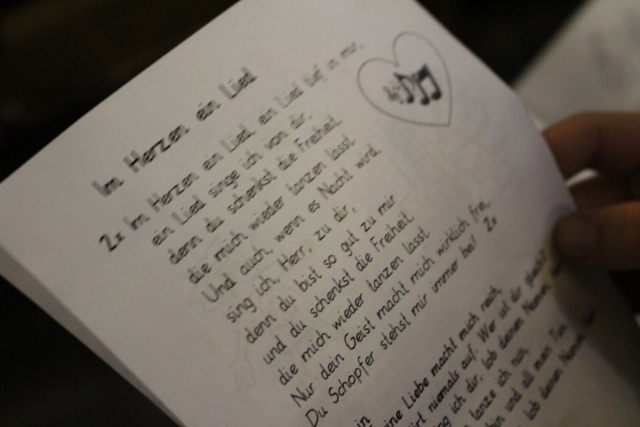 Im Herzen ein Lied
2x Im Herzen ein Lied, ein Lied tief in mir,
ein Lied singe ich von dir,
denn du schenkst die Freiheit,
die mich wieder tanzen lässt.
Und auch, wenn es Nacht wird,
sing ich, Herr, zu dir,
denn du bist so gut zu mir
und du schenkst die Freiheit,
die mich wieder tanzen lässt.
Nur dein Geist macht mich wirklich frei,
Du Schöpfer stehst mir immer bei! 2x
eine Liebe macht mich reich,
niemals auf. Wer ist dir gleich?
ich dir, lob deinen Namen
tanze ich nun,
und all mein Tun,
lob deinen Namen